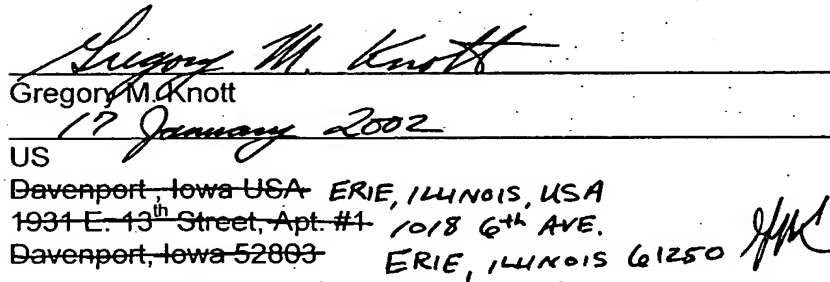 Gregory M. Knott
Gregory M. Knott
17 January 2002
US
Davenport, Iowa USA ERIE, ILLINOIS, USA
1931 E. 13th Street, Apt. #1 1018 6th AVE.
Davenport, Iowa 52803 ERIE, ILLINOIS 61250 GMK